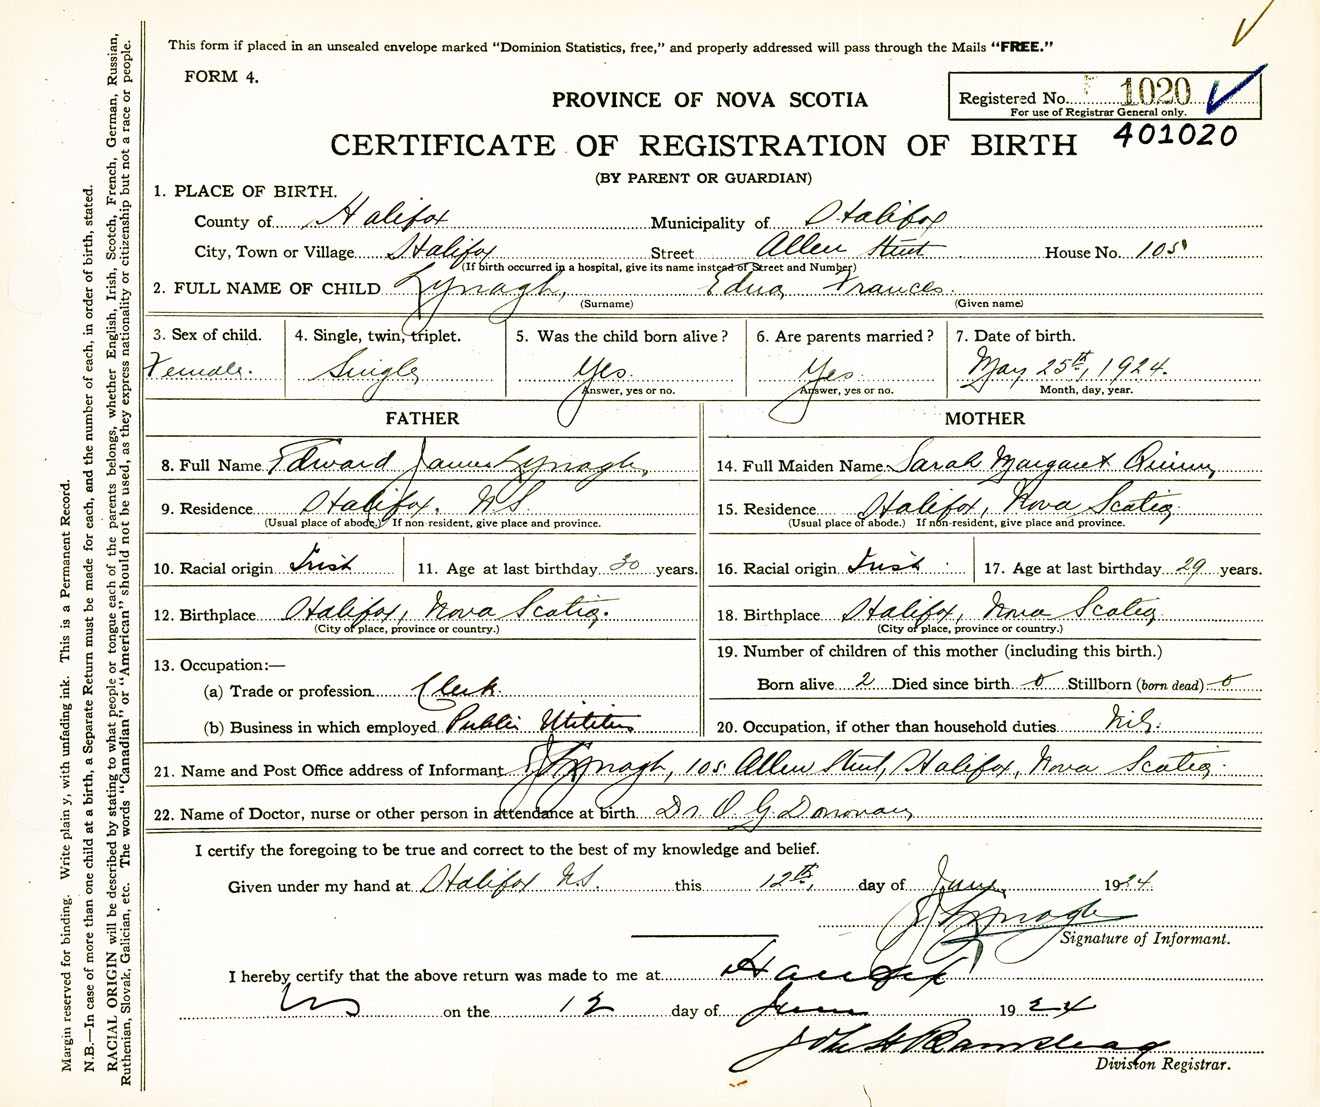 This form if placed in an unsealed envelope marked "Dominion Statistics, free," and properly addressed will pass through the Mails "FREE."
FORM 4.
Registered No. 1020
For use of Registrar General only.
401020
PROVINCE OF NOVA SCOTIA
CERTIFICATE OF REGISTRATION OF BIRTH
(BY PARENT OR GUARDIAN)
1. PLACE OF BIRTH.
County of Halifax Municipality of Halifax
City, Town or Village Halifax Street Allen Street House No. 105
(If birth occurred in a hospital, give its name instead of Street and Number)
2. FULL NAME OF CHILD Lynagh, Edna Frances.
(Surname) (Given name)
3. Sex of child. 4. Single, twin, triplet. 5. Was the child born alive? 6. Are parents married? 7. Date of birth.
Female. Single Yes. Yes May 25th, 1924.
Answer, yes or no. Answer, yes or no. Month, day, year.
FATHER MOTHER
8. Full Name Edward James Lynagh, 14. Full Maiden Name Sarah Margaret Quinn,
9. Residence Halifax. N.S. 15. Residence Halifax, Nova Scotia
(Usual place of abode.) If non-resident, give place and province. (Usual place of abode.) If non-resident, give place and province.
10. Racial origin Irish 11. Age at last birthday 30 years. 16. Racial origin Irish 17. Age at last birthday 29 years.
12. Birthplace Halifax, Nova Scotia. 18. Birthplace Halifax, Nova Scotia
(City of place, province or country.) (City of place, province or country.)
13. Occupation:— 19. Number of children of this mother (including this birth.)
(a) Trade or profession Clerk. Born alive 2 Died since birth 0 Stillborn (born dead) 0
(b) Business in which employed Public Utilities 20. Occupation, if other than household duties Nil.
21. Name and Post Office address of Informant Lynagh, 105 Allen Street, Halifax, Nova Scotia.
22. Name of Doctor, nurse or other person in attendance at birth Dr. O. G. Donovan,
I certify the foregoing to be true and correct to the best of my knowledge and belief.
Given under my hand at Halifax N.S. this 12th, day of June, 1924.
Lynagh
Signature of Informant.
I hereby certify that the above return was made to me at Halifax
NS on the 12 day of June 1924
John H
Division Registrar.
Margin reserved for binding. Write plainy, with unfading ink. This is a Permanent Record.
N.B.—In case of more than one child at a birth, a Separate Return must be made for each, and the number of each, in order of birth, stated.
RACIAL ORIGIN will be described by stating to what people or tongue each of the parents belongs, whether English, Irish, Scotch, French, German, Russian,
Ruthenian, Slovak, Galician, etc. The words "Canadian" or "American" should not be used, as they express nationality or citizenship but not a race or people.